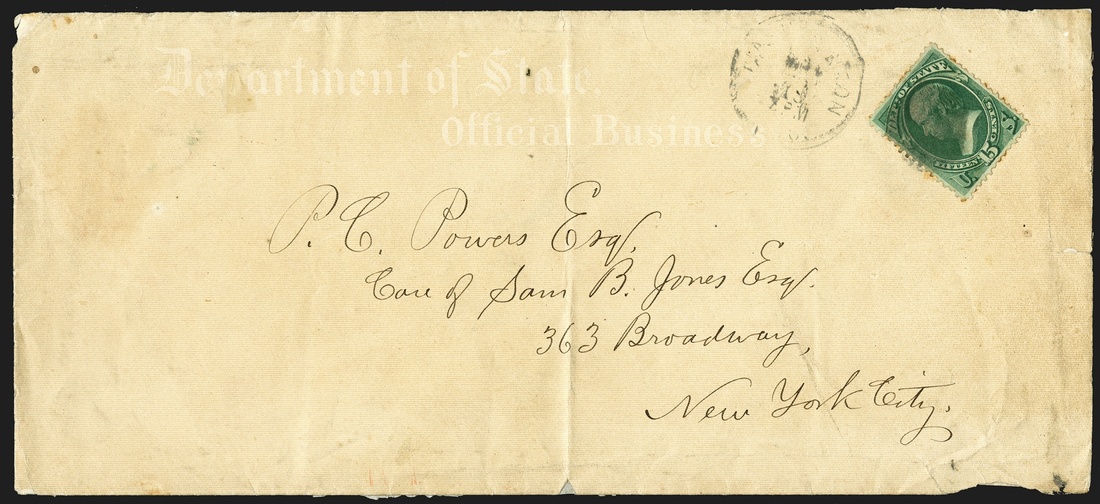 Department of State.
Official Business
DEP'T OF STATE
FIFTEEN
CENTS
U.S. 15
P. C. Powers Esq.
Care of Sam B. Jones Esq.
363 Broadway,
New York City.